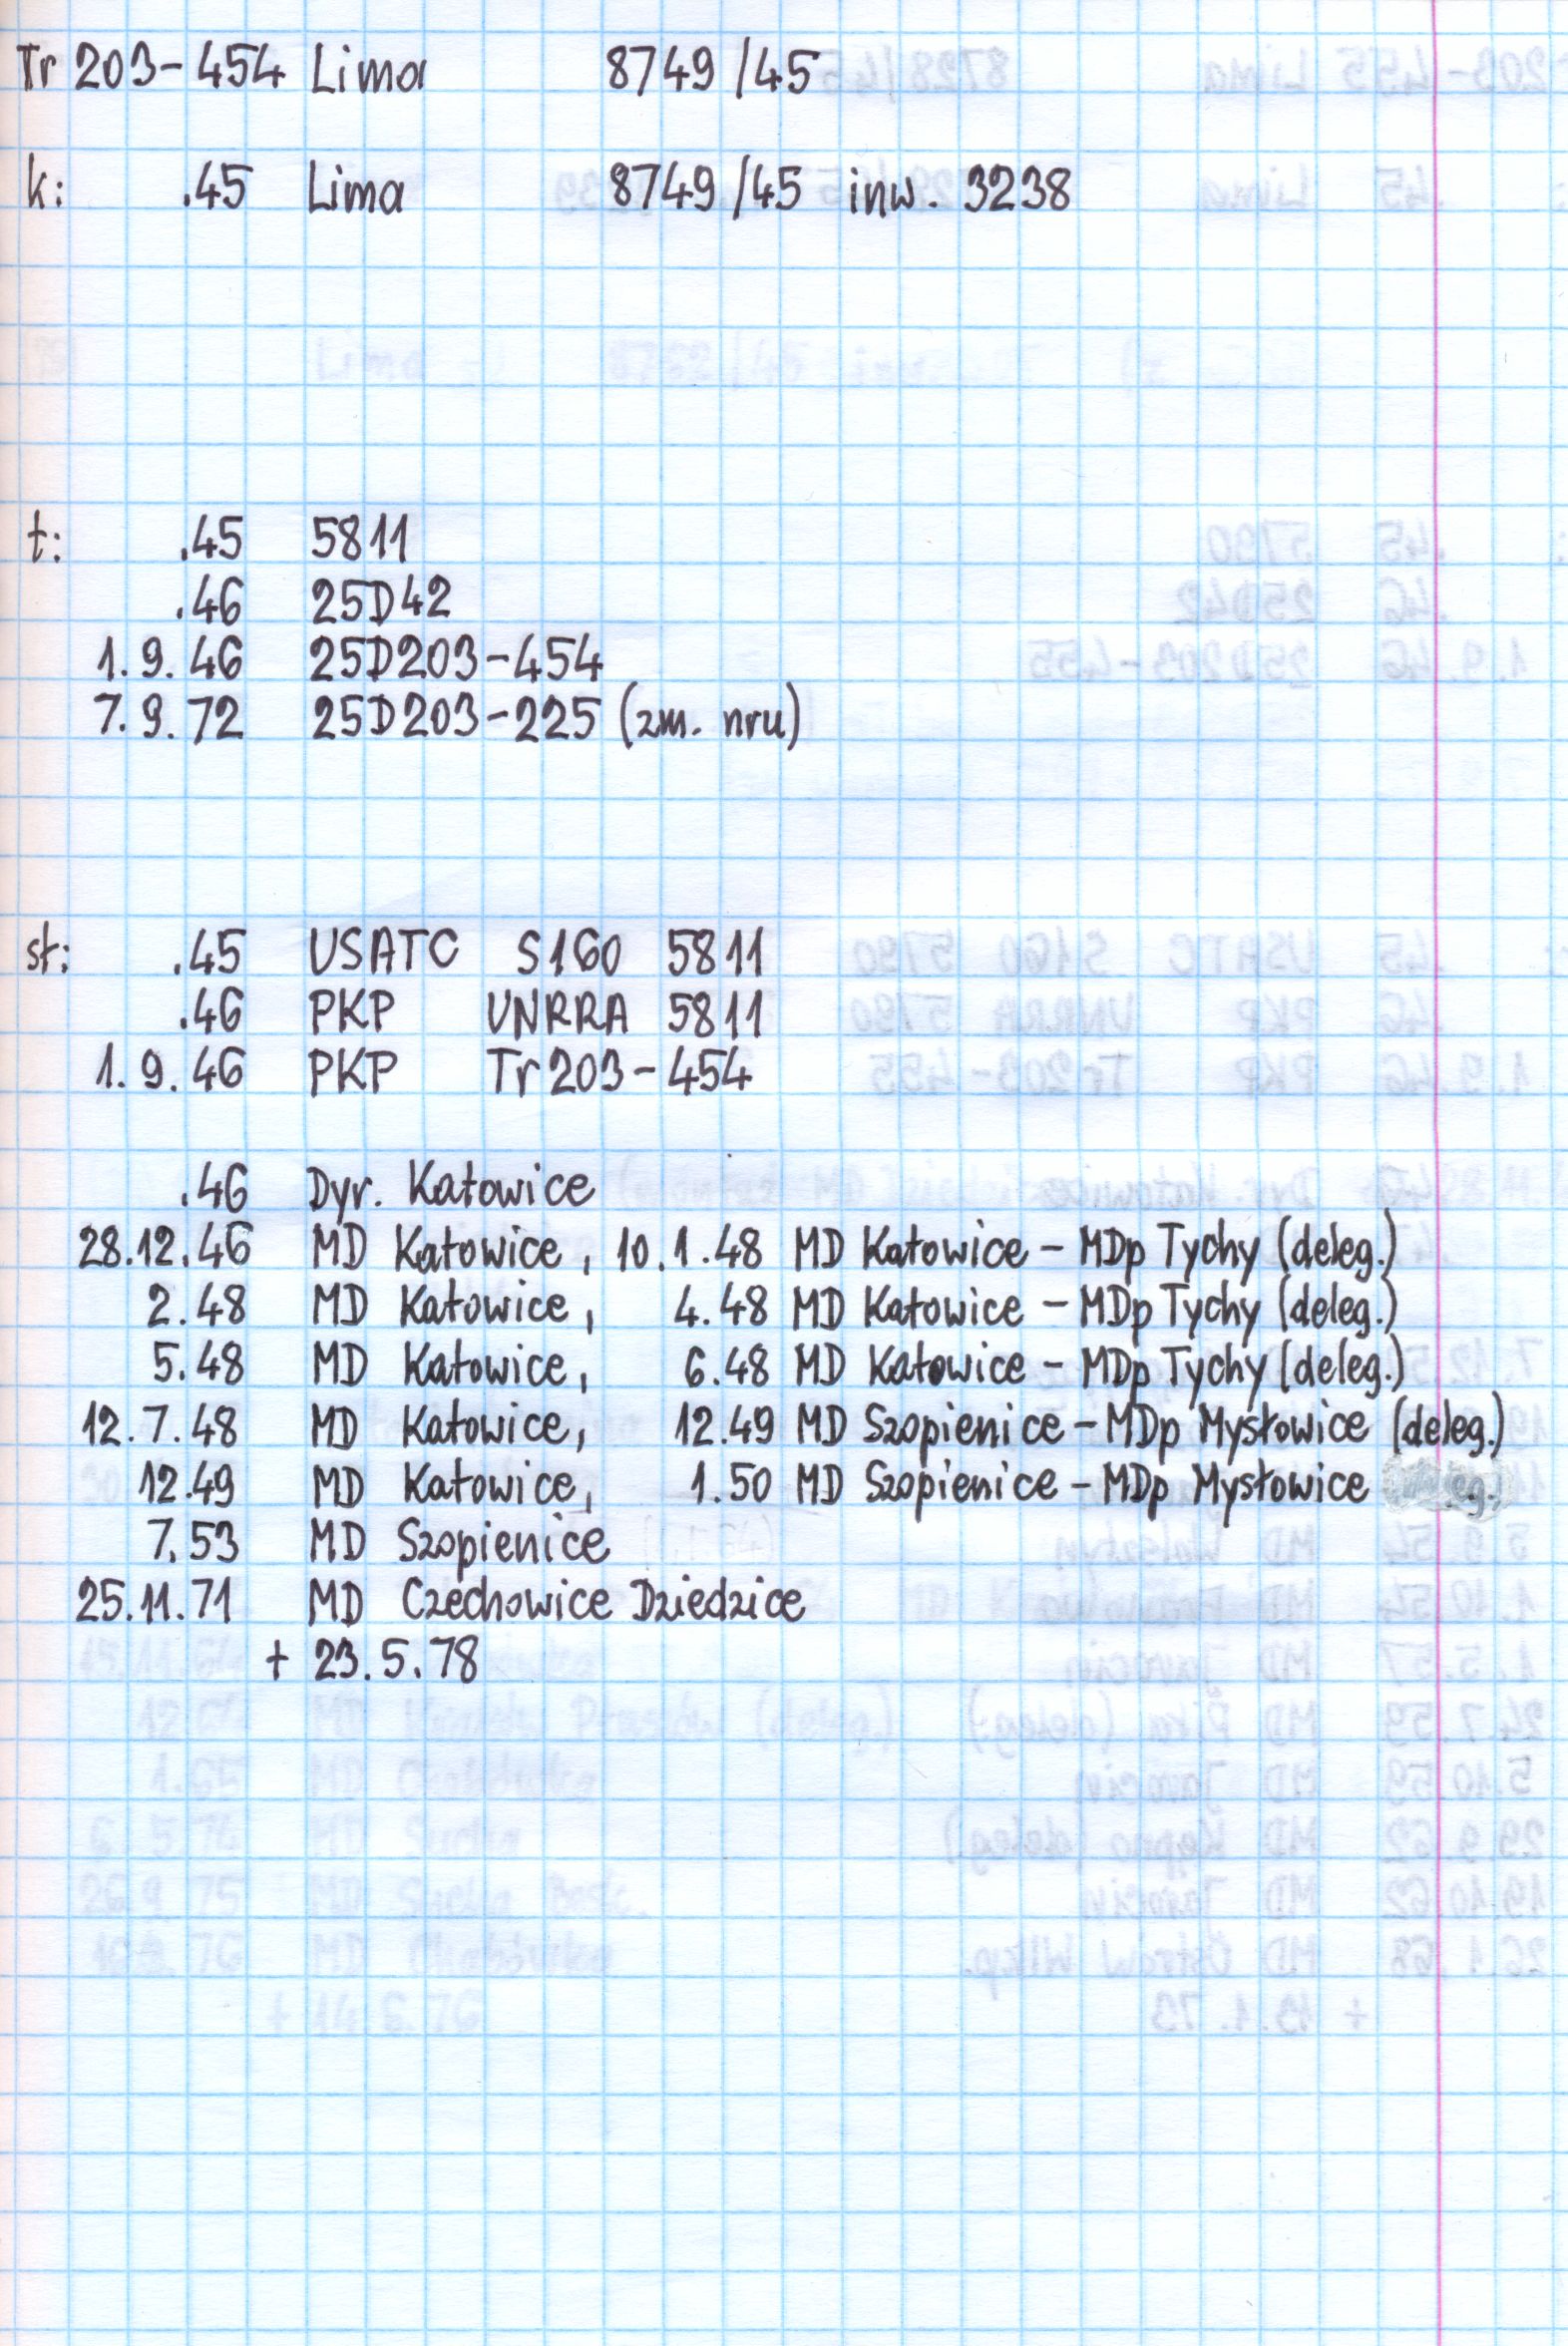 Tr 203-454 Lima 8749/45
k: .45 Lima 8749/45 inw. 3238
t: .45 5811
.46 25D42
1.9.46 25D203-454
7.9.72 25D203-225 (zm. nru)
st: .45 USATC S160 5811
.46 PKP UNRRA 5811
1.9.46 PKP Tr203-454
.46 Dyr. Katowice
28.12.46 MD Katowice, 10.1.48 MD Katowice - MDp Tychy (deleg.)
2.48 MD Katowice, 4.48 MD Katowice - MDp Tychy (deleg.)
5.48 MD Katowice, 6.48 MD Katowice - MDp Tychy (deleg.)
12.7.48 MD Katowice, 12.49 MD Szopienice - MDp Mysłowice (deleg.)
12.49 MD Katowice, 1.50 MD Szopienice - MDp Mysłowice
7.53 MD Szopienice
25.11.71 MD Czechowice Dziedzice
+ 23.5.78